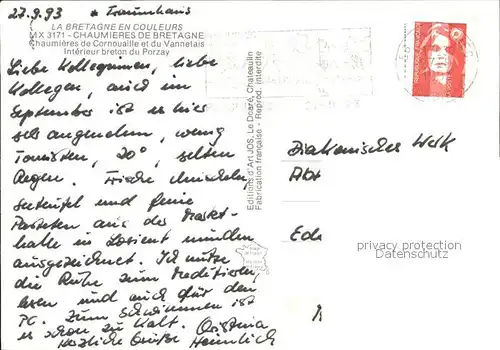 27.9.93 * Traumhaus
LA BRETAGNE EN COULEURS
MX 3171 - CHAUMIÈRES DE BRETAGNE
Chaumières de Cornouaille et du Vannetais
Intérieur breton du Porzay
Liebe Kolleginnen, liebe
Kollegen, auch im
September ist es hier
sehr angenehm, wenig
Touristen, 20°, selten
Regen. Frische Muscheln,
Seeteufel und feine
Pasteten aus der Markt-
halle in Lorient munden
ausgezeichnet. Ich nutze
die Ruhe zum Meditieren,
Lesen und auch für den
PC. Zum Schwimmen ist
es schon zu kalt. Christina
Herzliche Grüße Heinrich
Editions d'Art JOS, Le Doaré, Chateaulin
Fabrication française - Reprod. interdite
REPUBLIQUE FRANÇAISE
Diakonisches Werk
Abt
Ede
privacy protection
Datenschutz